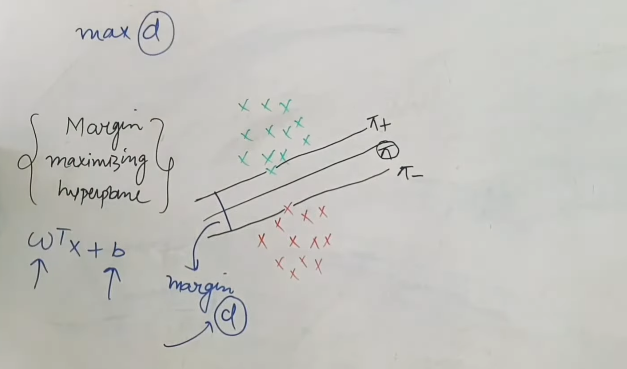 max d
Margin
maximizing
hyperplane
π+
π
π-
ωᵀx + b
margin
d